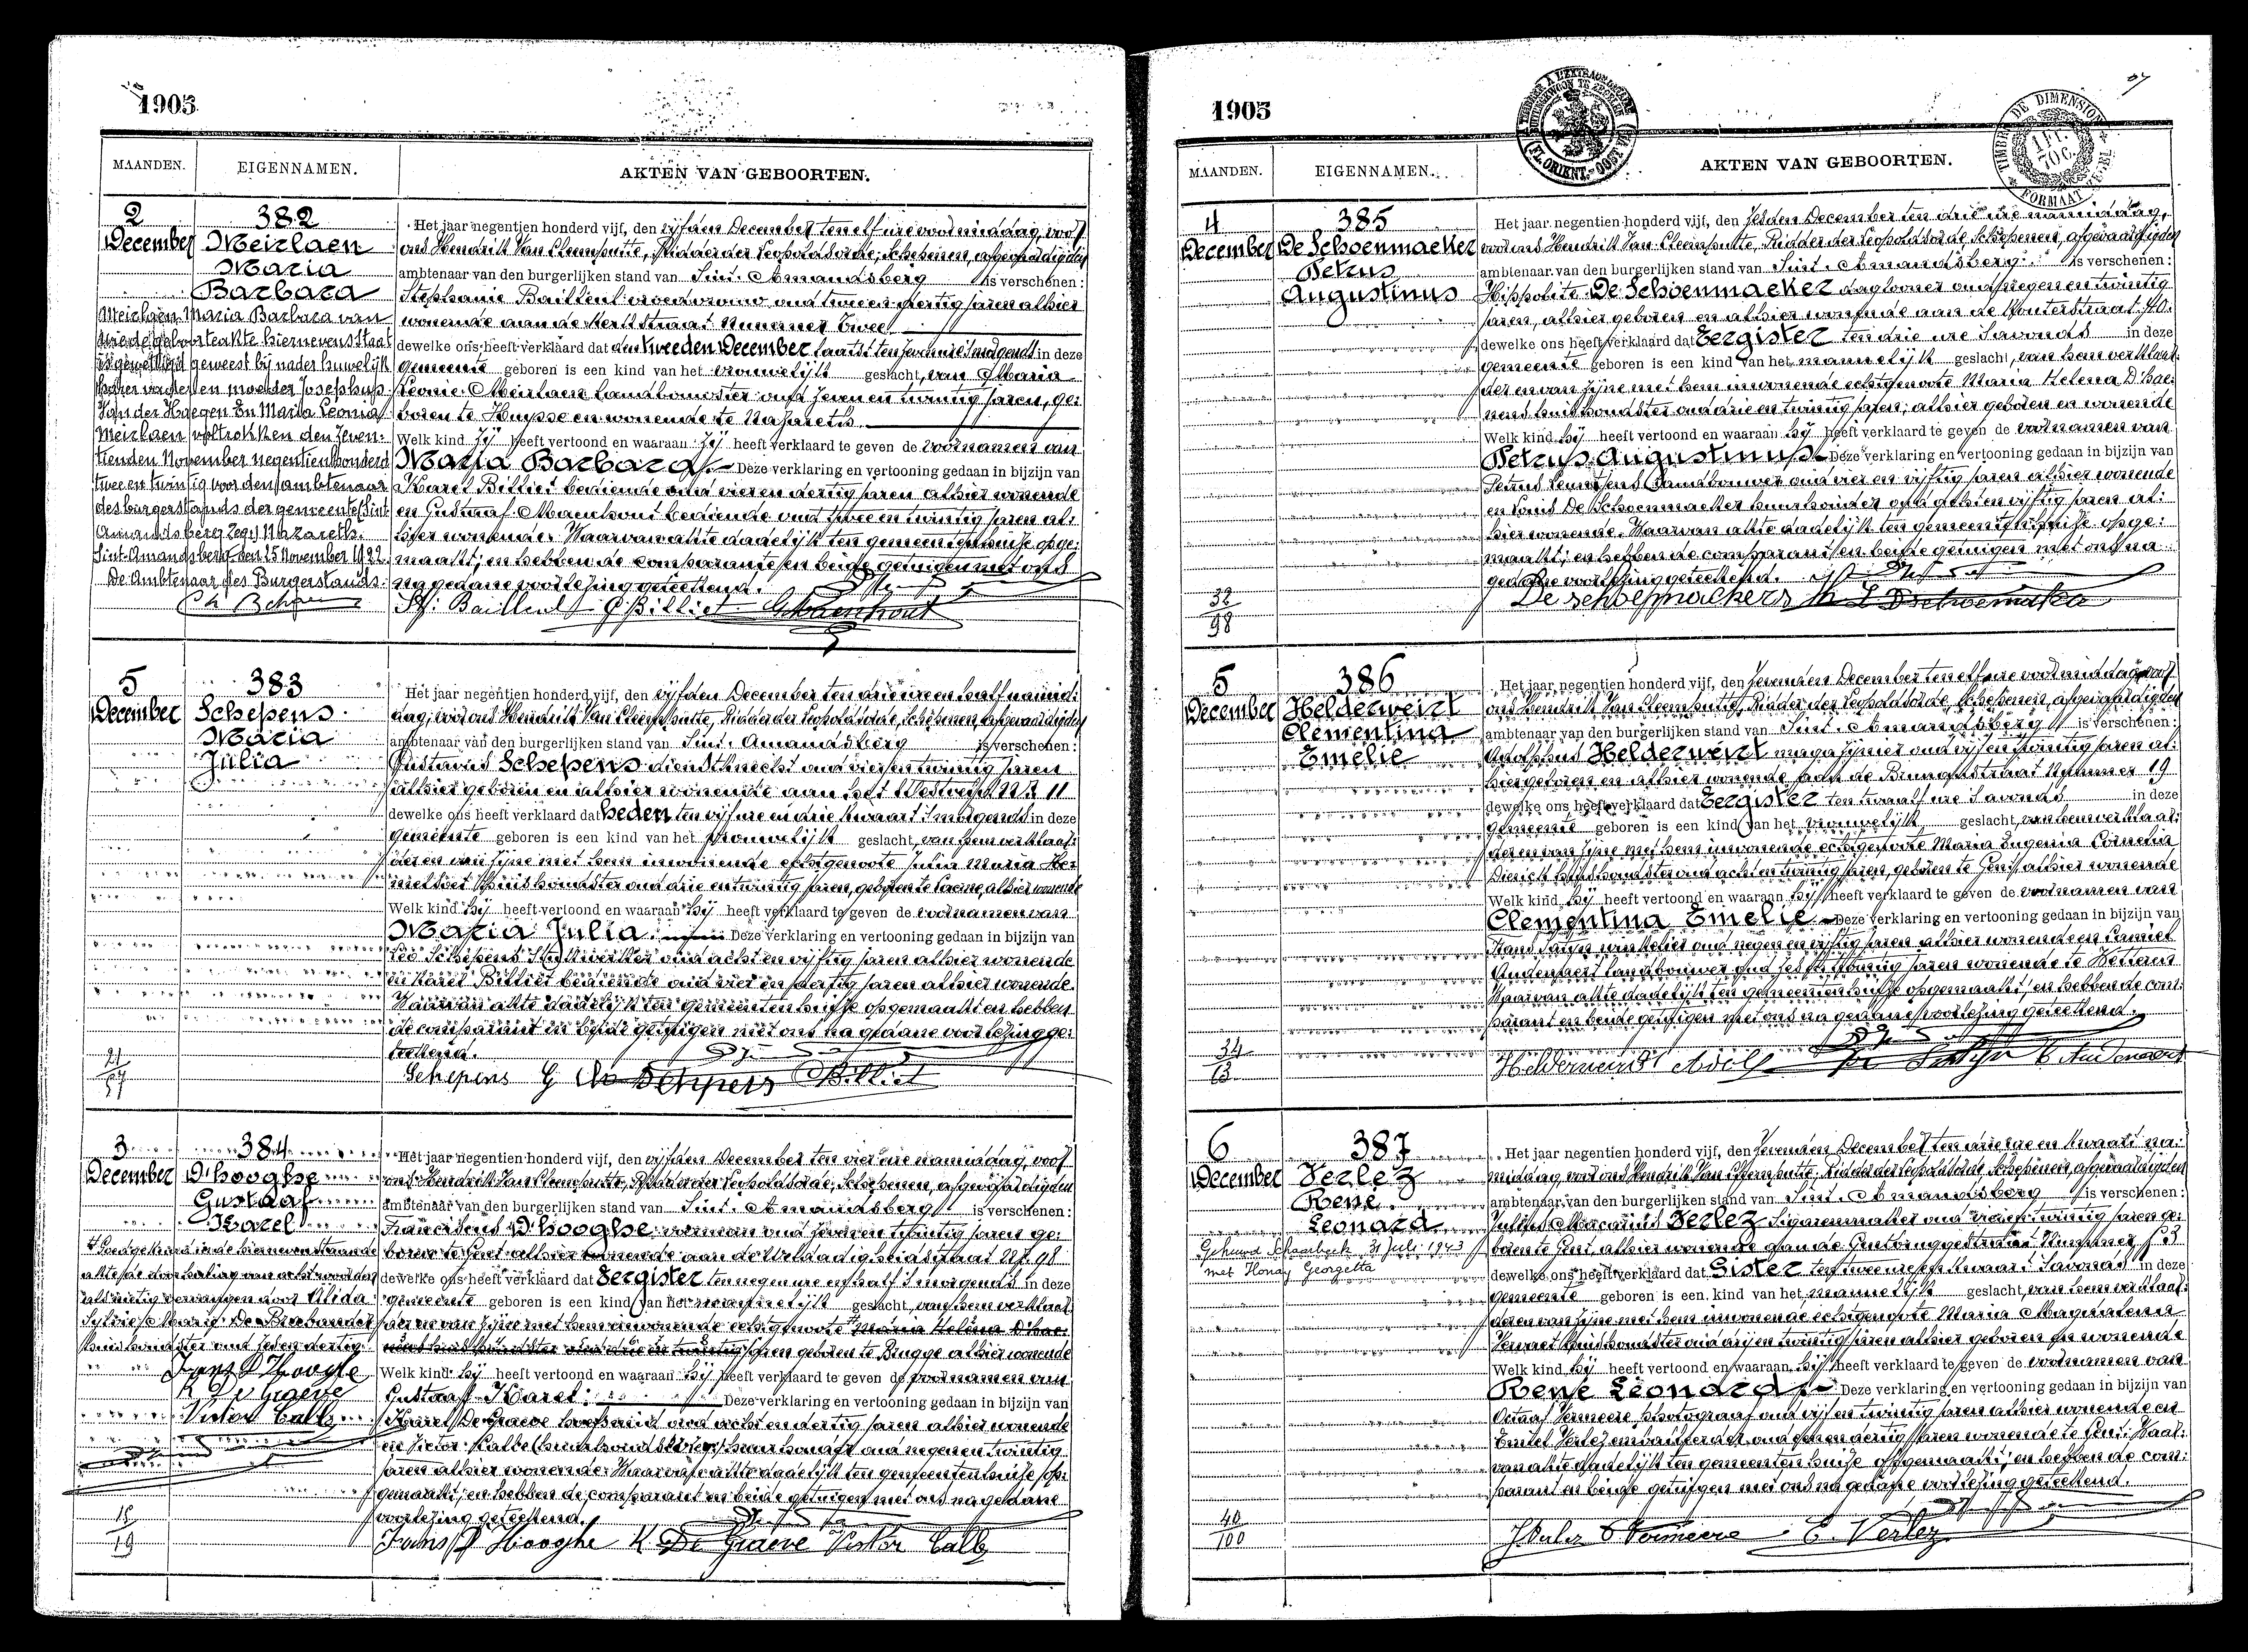 1905
MAANDEN. EIGENNAMEN. AKTEN VAN GEBOORTEN.
2 December
382
Meirlaen
Maria
Barbara
Meirlaen Maria Barbara van
wie de geboorteakte hiernevens staat
is gewettigd geweest bij nader huwelijk
harer vader en moeder Josephus
Van der Haegen En Maria Leonia
Meirlaen voltrokken den zeven-
tienden November negentienhonderd
twee en twintig voor den ambtenaar
des burgerstands der gemeente Sint
Amandsberg Zegel Nazareth.
Sint-Amandsberg den 25 November 1922.
De Ambtenaar des Burgerstands.
Het jaar negentien honderd vijf, den vijfden December ten elf ure voormiddag, voor
ons Hendrik Van Cleemputte, Ridder der Leopoldsorde, Schepenen, afgevaardigden
ambtenaar van den burgerlijken stand van Sint-Amandsberg is verschenen:
Stephanie Bailleul vroedvrouw oud twee en dertig jaren alhier
wonende aan de Kerkstraat nummer Twee
dewelke ons heeft verklaard dat den tweeden December laatst ten zeven ure 's morgends in deze
gemeente geboren is een kind van het vrouwelijk geslacht, van Maria
Leonie Meirlaen landbouwster oud zeven en twintig jaren, ge-
boren te Huysse en wonende te Nazareth.
Welk kind zij heeft vertoond en waaraan zij heeft verklaard te geven de voornamen van
Maria Barbara. Deze verklaring en vertooning gedaan in bijzijn van
Karel Billiet bediende oud vier en dertig jaren alhier wonende
en Gustaaf Maenhout bediende oud twee en twintig jaren al-
hier wonende. Waarvan akte dadelijk ten gemeentenhuize opge-
maakt; en hebben de comparante en beide getuigen met ons
na gedane voorlezing geteekend.
St. Bailleul C Billiet G. Maenhout
5 December
383
Schepens
Maria
Julia
21
57
Het jaar negentien honderd vijf, den vijfden December ten drie ure en half namid-
dag, voor ons Hendrik Van Cleemputte, Ridder der Leopoldsorde, Schepenen, afgevaardigden
ambtenaar van den burgerlijken stand van Sint-Amandsberg is verschenen:
Gustavus Schepens dienstknecht oud vier en twintig jaren
alhier geboren en alhier wonende aan het Westveld N.r 11
dewelke ons heeft verklaard dat heden ten vijf ure en drie kwaart 's morgends in deze
gemeente geboren is een kind van het vrouwelijk geslacht, van hem verklaar-
der en van zijne met hem inwonende echtgenoote Julia Maria Her-
huishoudster oud drie en twintig jaren, geboren te Laerne, alhier wonende
Welk kind hij heeft vertoond en waaraan hij heeft verklaard te geven de voornamen van
Maria Julia. Deze verklaring en vertooning gedaan in bijzijn van
Leo Schepens oud acht en vijftig jaren alhier wonende
en Karel Billiet bediende oud vier en dertig jaren alhier wonende.
Waarvan akte dadelijk ten gemeentenhuize opgemaakt en hebben
de comparant en beide getuigen met ons na gedane voorlezing ge-
teekend.
Schepens G Schepens C Billiet
3 December
384
D'hooghe
Gustaaf
Karel
Goedgekeurd in de hiernevenstaande
akte de doorhaling van acht woorden
als nietig vervangen door Alida
Sylvie Marie De Brabander
huishoudster oud zeven dertig
Frans D'Hooghe
K De Graeve
Victor Calle
15
19
Het jaar negentien honderd vijf, den vijfden December ten vier ure namiddag, voor
ons Hendrik Van Cleemputte, Ridder der Leopoldsorde, Schepenen, afgevaardigden
ambtenaar van den burgerlijken stand van Sint-Amandsberg is verschenen:
Franciscus D'hooghe voerman oud jaren ge-
boren te Gent alhier wonende aan de Weldadigheidstraat N.r 98
dewelke ons heeft verklaard dat Eergister ten negen ure en half 's morgends in deze
gemeente geboren is een kind van het mannelijk geslacht, van hem verklaar-
der en van zijne met hem inwonende echtgenoote Maria Helena D'hae-
nens huishoudster oud drie en twintig jaren geboren te Brugge alhier wonende
Welk kind hij heeft vertoond en waaraan hij heeft verklaard te geven de voornamen van
Gustaaf Karel. Deze verklaring en vertooning gedaan in bijzijn van
Karel De Graeve oud acht en dertig jaren alhier wonende
en Victor Calle oud negen en twintig
jaren alhier wonende. Waarvan akte dadelijk ten gemeentenhuize op-
gemaakt; en hebben de comparant en beide getuigen met ons na gedane
voorlezing geteekend.
Frans D'Hooghe K. De Graeve Victor Calle
1905
TIMBRE DE DIMENSION
1 Fr. 70 C.
MAANDEN. EIGENNAMEN. AKTEN VAN GEBOORTEN.
4 December
385
De Schoenmaeker
Petrus
Augustinus
32
98
Het jaar negentien honderd vijf, den zesden December ten drie ure namiddag,
voor ons Hendrik Van Cleemputte, Ridder der Leopoldsorde, Schepenen, afgevaardigden
ambtenaar van den burgerlijken stand van Sint-Amandsberg is verschenen:
Hippolite De Schoenmaeker daglooner oud negen en twintig
jaren, alhier geboren en alhier wonende aan de Kouterstraat 40.
dewelke ons heeft verklaard dat Eergister ten drie ure 's avonds in deze
gemeente geboren is een kind van het mannelijk geslacht, van hem verklaar-
der en van zijne met hem inwonende echtgenoote Maria Helena D'hae-
nens huishoudster oud drie en twintig jaren; alhier geboren en wonende
Welk kind hij heeft vertoond en waaraan hij heeft verklaard te geven de voornamen van
Petrus Augustinus. Deze verklaring en vertooning gedaan in bijzijn van
Petrus landbouwer oud vier en vijftig jaren alhier wonende
en Louis De Schoenmaeker oud acht en vijftig jaren al-
hier wonende. Waarvan akte dadelijk ten gemeentenhuize opge-
maakt; en hebben de comparant en beide getuigen met ons na
gedane voorlezing geteekend.
5 December
386
Helderweirt
Clementina
Emelie
34
63
Het jaar negentien honderd vijf, den zevenden December ten elf ure voormiddag voor
ons Hendrik Van Cleemputte, Ridder der Leopoldsorde, Schepenen, afgevaardigden
ambtenaar van den burgerlijken stand van Sint-Amandsberg is verschenen:
Adolphus Helderweirt magazijnier oud vijf en twintig jaren al-
hier geboren en alhier wonende aan de Nummer 19
dewelke ons heeft verklaard dat Eergister ten twaalf ure 's avonds in deze
gemeente geboren is een kind van het vrouwelijk geslacht, van hem verklaar-
der en van zijne met hem inwonende echtgenoote Maria Eugenia Cornelia
huishoudster oud acht en twintig jaren, geboren te Gent, alhier wonende
Welk kind hij heeft vertoond en waaraan hij heeft verklaard te geven de voornamen van
Clementina Emelie. Deze verklaring en vertooning gedaan in bijzijn van
Frans winkelier oud negen en vijftig jaren alhier wonende en Camiel
Audenaert landbouwer oud jaren wonende te
Waarvan akte dadelijk ten gemeentenhuize opgemaakt; en hebben de com-
parant en beide getuigen met ons na gedane voorlezing geteekend.
Helderweirt Adolf C Audenaert
6 December
387
Verlez
Rene
Leonard
Gehuwd Schaarbeek 31 Juli 1943
met Honay Georgetta
40
100
Het jaar negentien honderd vijf, den zevenden December ten drie ure en kwaart na-
middag, voor ons Hendrik Van Cleemputte, Ridder der Leopoldsorde, Schepenen, afgevaardigden
ambtenaar van den burgerlijken stand van Sint-Amandsberg is verschenen:
Julius Macarius Verlez sigarenmaker oud vier en twintig jaren ge-
boren te Gent, alhier wonende aan de Nummer 53
dewelke ons heeft verklaard dat Gister ten twee ure en kwaart 's avonds in deze
gemeente geboren is een kind van het mannelijk geslacht, van hem verklaar-
der en van zijne met hem inwonende echtgenoote Maria Magdalena
Vervaet huishoudster oud drij en twintig jaren alhier geboren en wonende
Welk kind hij heeft vertoond en waaraan hij heeft verklaard te geven de voornamen van
Rene Leonard. Deze verklaring en vertooning gedaan in bijzijn van
Octaaf Vermeere, photograaf oud vijf en twintig jaren alhier wonende en
Emiel Verlez oud en dertig jaren wonende te Gent. Waar-
van akte dadelijk ten gemeentenhuize opgemaakt; en hebben de com-
parant en beide getuigen met ons na gedane voorlezing geteekend.
J Verlez O Vermeere E. Verlez